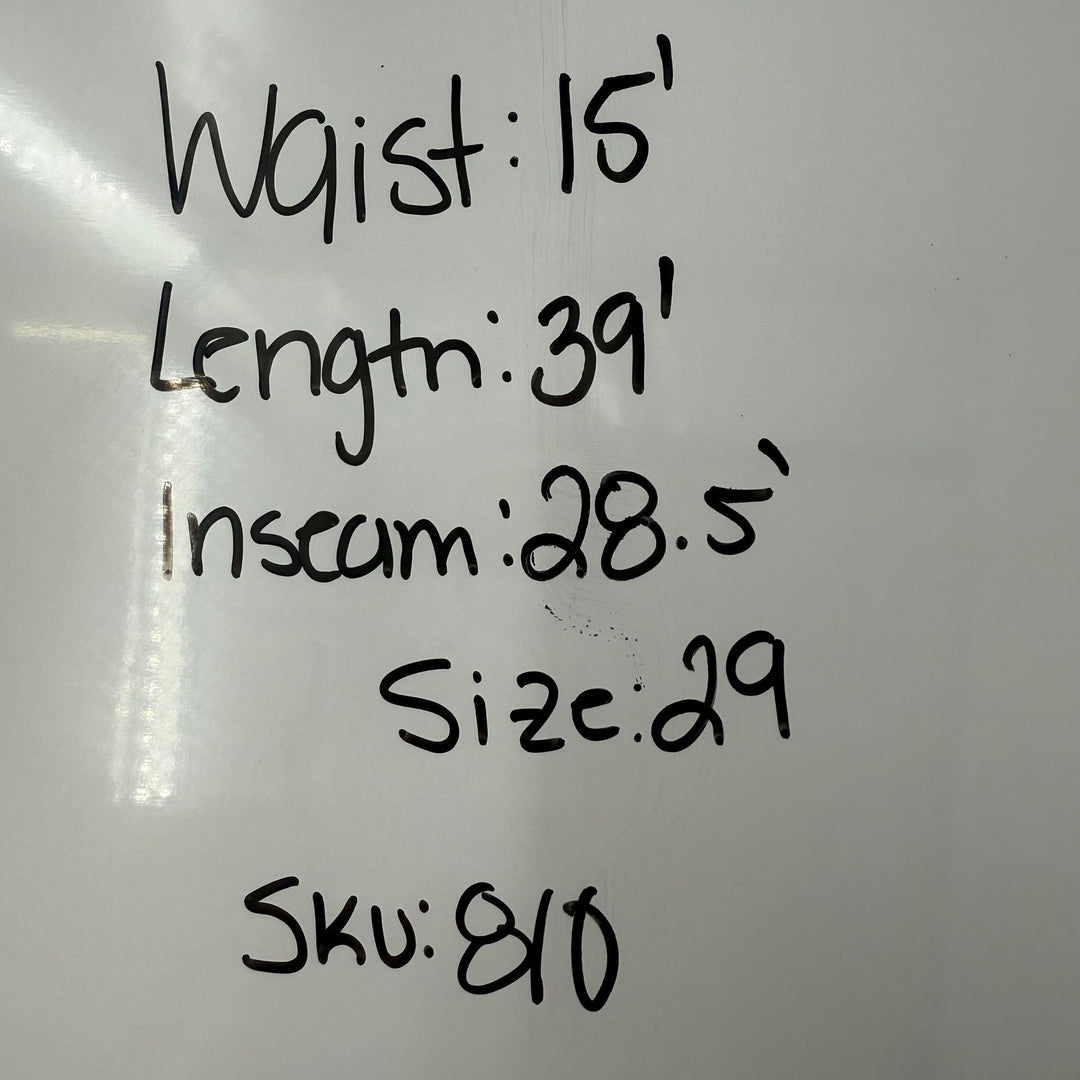 Waist: 15'
Length: 39'
Inseam: 28.5`
Size: 29
SKU: 810